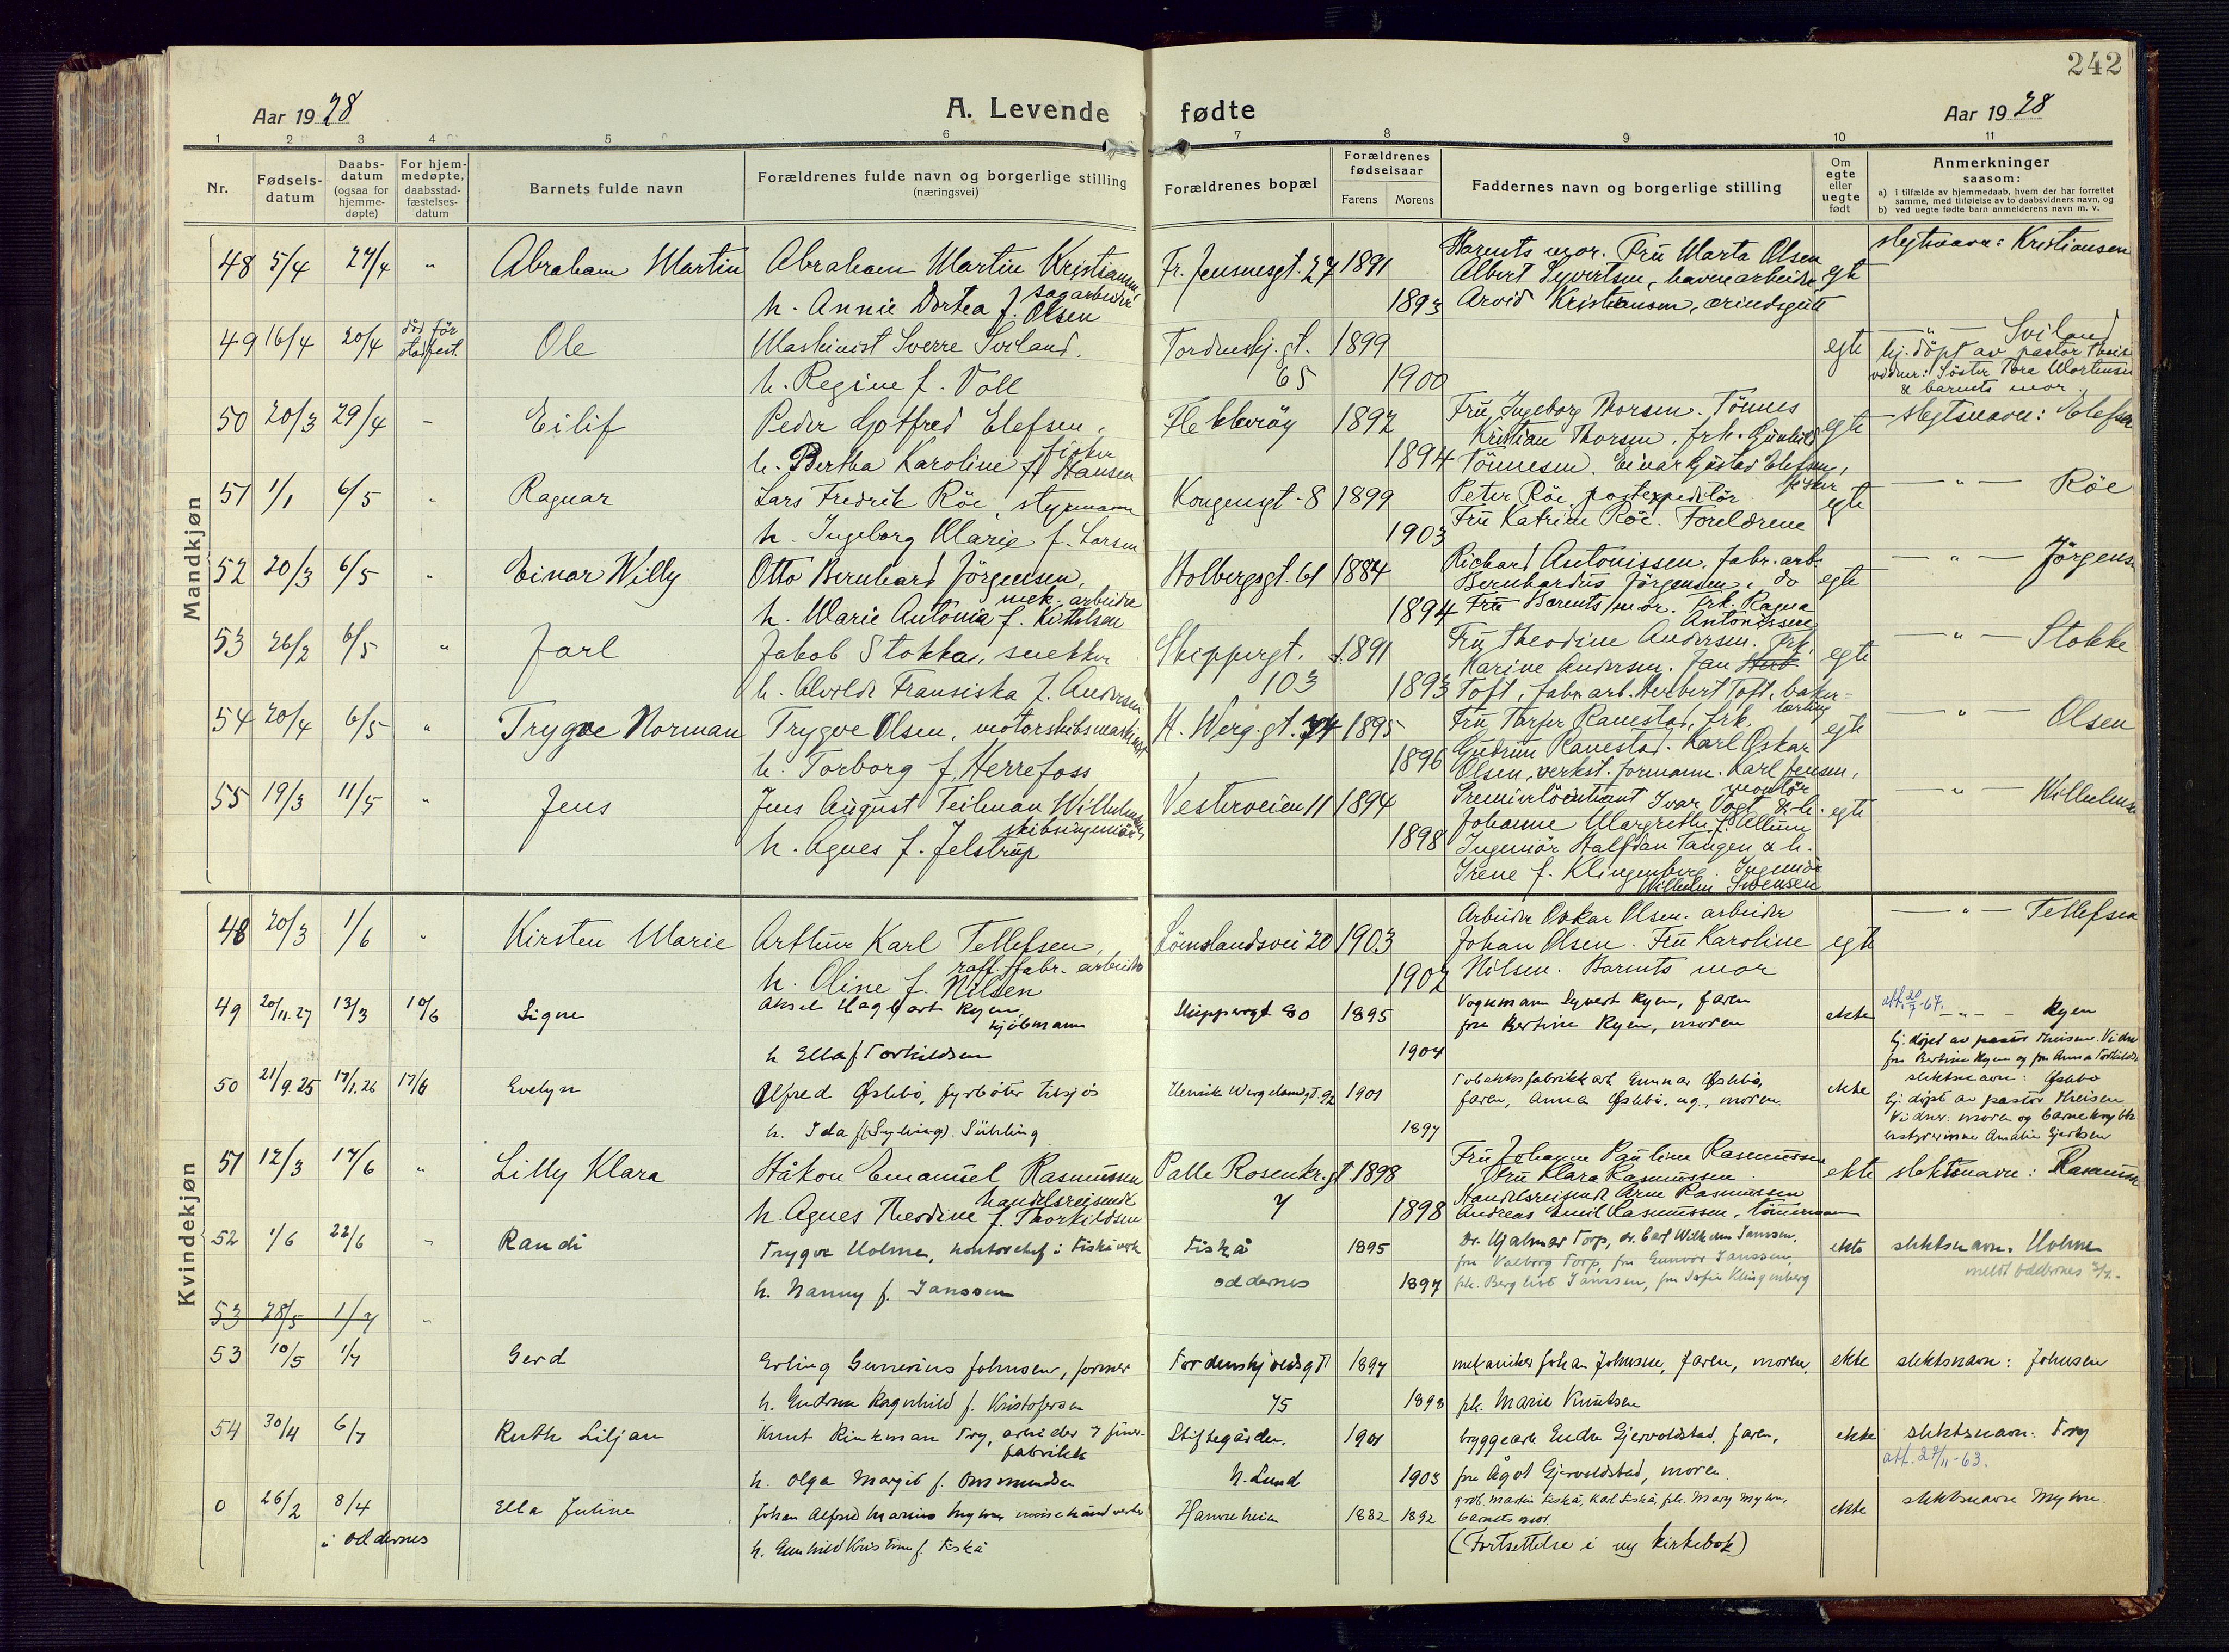 242
Aar 1928
A. Levende fødte
Aar 1928
1 2 3 4 5 6 7 8 9 10 11
Nr.
Fødsels-
datum
Daabs-
datum
(ogsaa for
hjemme-
døpte)
For hjem-
medøpte,
daabsstad-
fæstelses-
datum
Barnets fulde navn
Forældrenes fulde navn og borgerlige stilling
(næringsvei)
Forældrenes bopæl
Forældrenes
fødselsaar
Farens Morens
Faddernes navn og borgerlige stilling
Om
egte
eller
uegte
født
Anmerkninger
saasom:
a) i tilfælde av hjemmedaab, hvem der har forrettet
samme, med tilføielse av to daabsvidners navn, og
b) ved uegte fødte barn anmelderens navn m. v.
Mandkjøn
48 5/4 27/4 " Abraham Martin
Abraham Martin Kristiansen,
sagarbeider
h. Annie Dortea f. Olsen
Fr. Jensensgt. 27 1891
1893
Barnets mor. Fru Marta Olsen
Albert Syvertsen, havnearbeider
Arvid Kristiansen, ærindsgutt
egte
slegtsnavn: Kristiansen
49 16/4 20/4 død før
stadfest.
Ole
Maskinist Sverre Sviland.
h. Regine f. Voll
Tordenskj. gt.
65
1899
1900
egte
— " — Sviland
hj. døpt av pastor Theis
vidner: Søster Tora Mortensen
& barnets mor.
50 20/3 29/4 - Eilif
Peder Gotfred Elefsen,
fisker
h. Bertha Karoline f. Hansen
Flekkerøy 1892
1894
Fru Ingeborg Thorsen. Tønnes
Kristian Thorsen. frk. Gunhild
Tønnesen. Einar Gustav Elefsen,
fisker
egte
slegtsnavn: Elefsen
51 1/1 6/5 " Ragnar
Lars Fredrik Röe, styrmann
h. Ingeborg Marie f. Larsen
Kongensgt. 8 1899
1903
Peter Röe, postexpeditør
Fru Katrine Röe. Forældrene
egte
— " — Röe
52 20/3 6/5 " Einar Willy
Otto Bernhard Jörgensen,
mek. arbeider
h. Marie Antonia f. Kittelsen
Holbergsgt. 61 1884
1894
Richard Antonissen, fabr. arb.
Bernhardus Jörgensen, do
Fru Barnets mor. Frk. Ragna
Antonissen
egte
— " — Jörgensen
53 26/2 6/5 " Jarl
Jakob Stokka, snekker
h. Alvilde Fransiska f. Andersen
Skippergt.
103
1891
1893
Fru Theodine Andersen. Frk.
Karine Andersen. Jan
Toft, fabr. arb. Herbert Toft, baker-
lærling
egte
— " — Stokke
54 20/4 6/5 " Trygve Norman
Trygve Olsen, motorskibsmaskinist
h. Torborg f. Herrefoss
H. Werg. gt. 74 1895
1896
Fru Torfer Ranestad, frk.
Gudrun Ranestad. Karl Oskar
Olsen, verkst. formann. Karl Jensen,
montör
egte
— " — Olsen
55 19/3 11/5 " Jens
Jens August Teilman Wilhelmsen,
skibsingeniør
h. Agnes f. Jelstrup
Vesterveien 11 1894
1898
Premierlöitnant Ivar Vogt & h.
Johanne Margrethe f. Allum
Ingeniör Halfdan Tangen & h.
Irene f. Klingenberg. Ingeniør
Wilhelm Svensen
egte
— " — Wilhelmsen
Kvindekjøn
48 20/3 1/6 " Kirsten Marie
Arthur Karl Tellefsen,
raff. fabr. arbeider
h. Oline f. Nilsen
Lömslandsvei 20 1903
1902
Arbeider Oskar Olsen. arbeider
Johan Olsen. Fru Karoline
Nilsen. Barnets mor
egte
— " — Tellefsen
49 20/11.27 13/3 10/6 Signe
Aksel Hagbart Ryen,
kjöbmann
h. Ella f. Torkildsen
Skippergt 80 1895
1904
Vognmann Syvert Ryen, faren
fru Bertine Ryen, moren
ekte
att. 20/7-67.
— " — Ryen
hj. döpt av pastor Theisen. Vidner
fru Bertine Ryen og fru Anna Torkildsen
50 21/9.25 17/1.26 17/6 Evelyn
Alfred Øslebö, fyrböter tilsjös
h. Ida f. (Syling) Sühling
Henrik Wergelandsgt. 92 1901
1897
Tobakksfabrikkarb. Gunnar Øslebö,
faren, Anna Øslebö, ug., moren.
ekte
slektsnavn: Øslebö
hj. döpt av pastor Theisen
Vidner: moren og barnekrybbe
bestyrerinne Amalie Gjertsen
51 12/3 17/6 " Lilly Klara
Håkon Emanuel Rasmussen
handelsreisende
h. Agnes Theodine f. Thorkildsen
Palle Rosenkr. gt
7
1898
1898
Fru Johanne Pauline Rasmussen
Fru Klara Rasmussen
Handelsreisende Arne Rasmussen
Andreas Emil Rasmussen, tömmermann
ekte
slektsnavn: Rasmussen
52 1/6 22/6 - Randi
Trygve Holme, kontorchef i Fiskå verk
h. Nanny f. Janssen
Fiskå
Oddernes
1895
1897
Dr. Hjalmar Torp, dr. Carl Wilhelm Janssen,
fru Valborg Torp, fru Gunvor Janssen,
frk. Bergliot Janssen, fru Sofie Klingenberg
ekte
slektsnavn: Holme
meldt Oddernes
53 28/5 1/7 "
53 10/5 1/7 Gerd
Erling Gunerius Johnsen, former
h. Gudrun Ragnhild f. Kristofersen
Tordenskjoldsgt
75
1897
1893
mekaniker Johan Johnsen, faren, moren,
frk. Marie Knutsen
ekte
slektsnavn: Johnsen
54 30/4 6/7 Ruth Liljan
Knut Rinkman Try, arbeider i finer-
fabrikk
h. Olga Margit f. Ommundsen
Stiftegården,
N. Lund
1901
1903
bryggearb. Endre Gjervoldstad, faren,
fru Ågot Gjervoldstad, moren.
ekte
slektsnavn: Try
att. 27/11-63.
0 26/2 8/4
i Oddernes
Ella Juline
Johan Alfred Marius Myhre,
h. Gunhild Kristine f. Fiskå
Hamreheien 1882 1892
Martin Fiskå, Karl Fiskå, frk. Mary Myhre,
barnets mor.
(Fortsettelse i ny kirkebok)
ekte
slektsnavn Myhre.